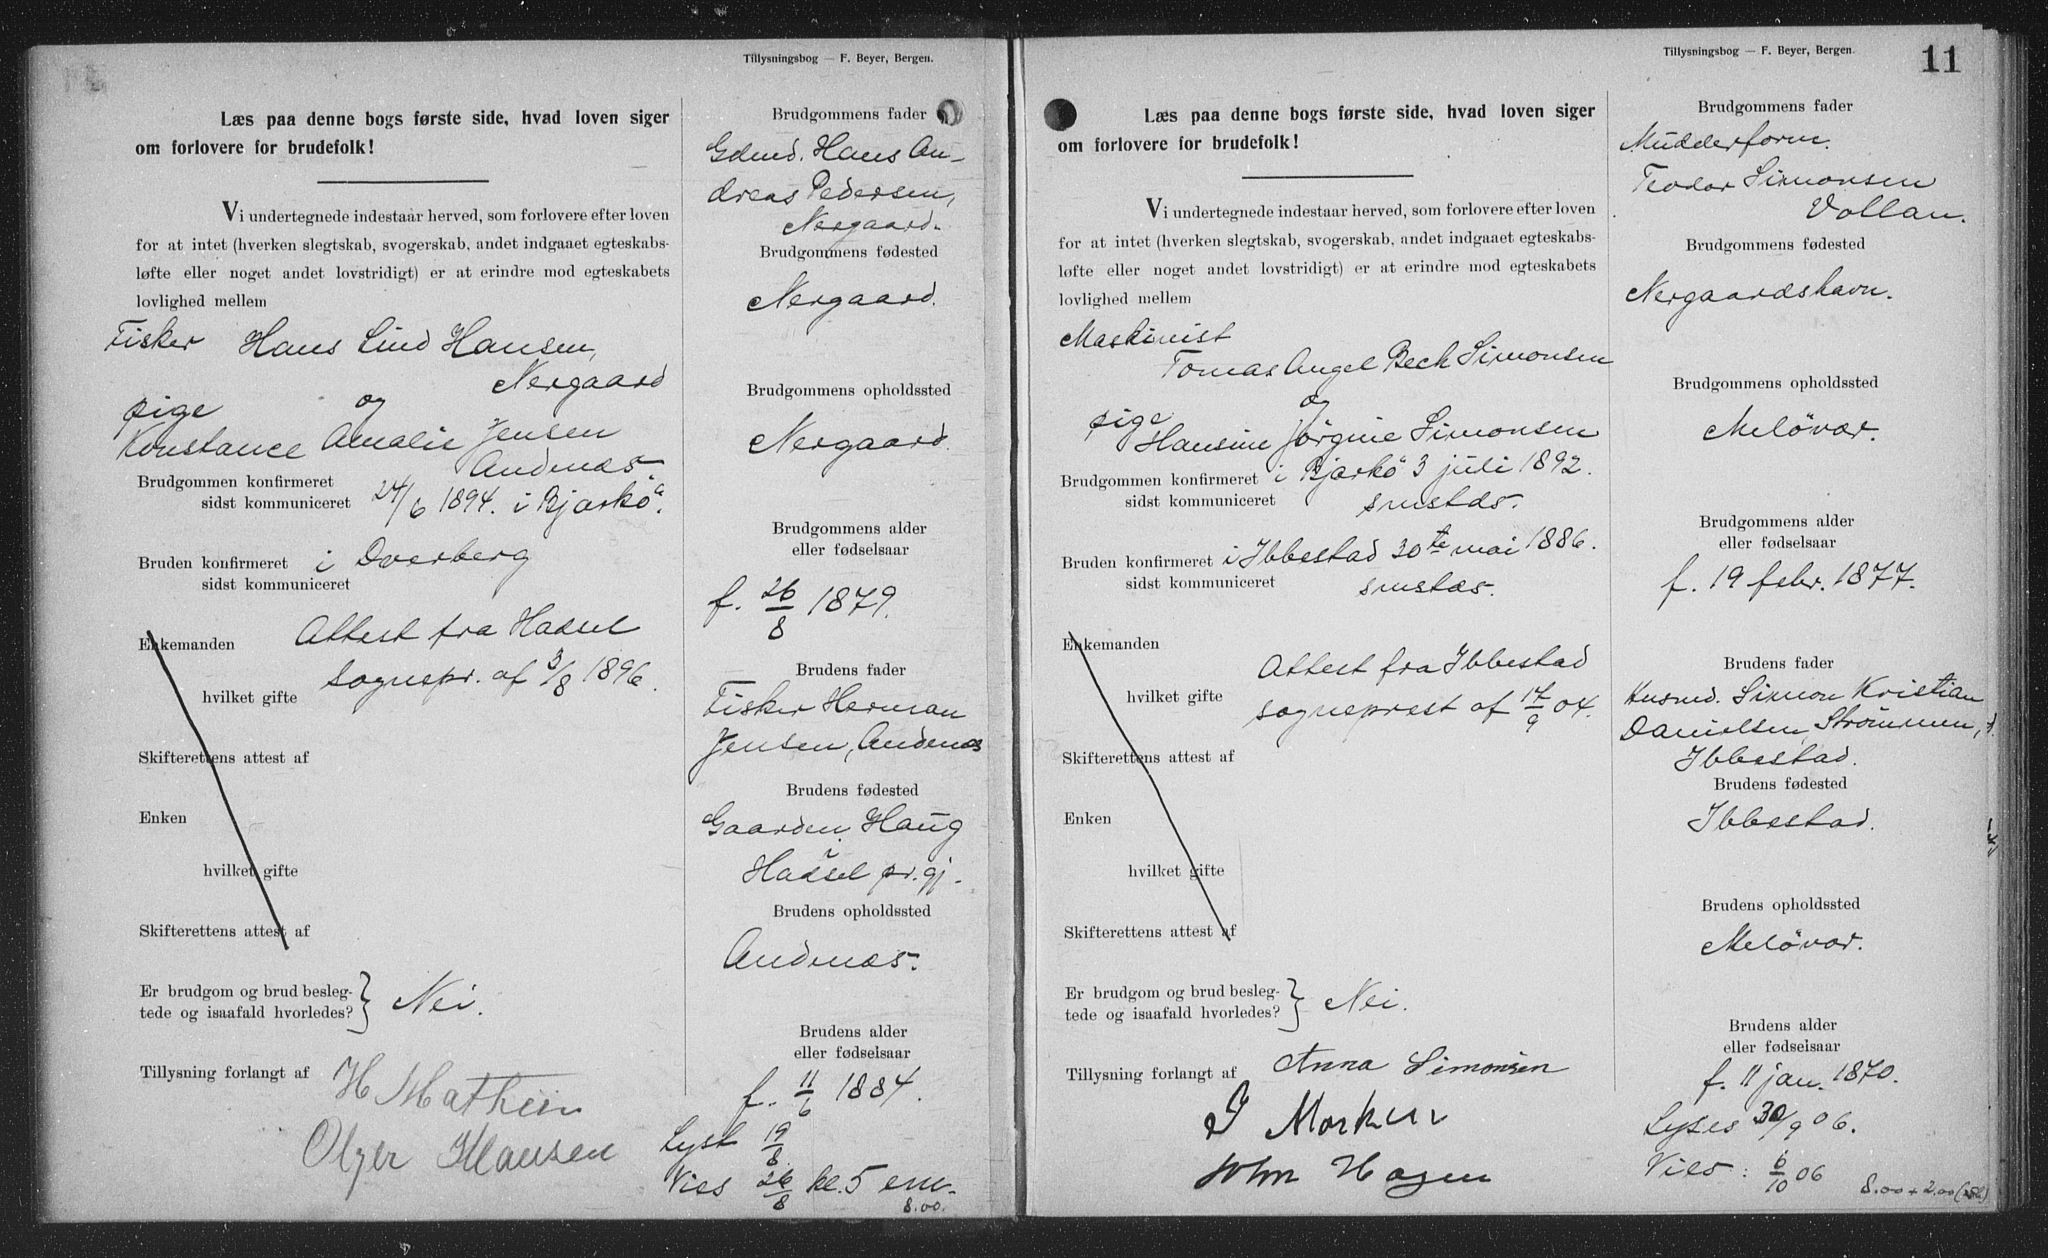 Tillysningbog — F. Beyer, Bergen.
Læs paa denne bogs første side, hvad loven siger
om forlovere for brudefolk!
Vi undertegnede indestaar herved, som forlovere efter loven
for at intet (hverken slegtskab, svogerskab, andet indgaaet egteskabs-
løfte eller noget andet lovstridigt) er at erindre mod egteskabets
lovlighed mellem
Fisker Hans Lind Hansen,
Nergaard
pige og
Konstance Amalie Jensen
Andenæs
Brudgommen konfirmeret
sidst kommuniceret 24/6 1894. i Bjarkö.
Bruden konfirmeret i Dverberg
sidst kommuniceret
Enkemanden Attest fra Hadsel
hvilket gifte sognepr. af 3/8 1896.
Skifterettens attest af
Enken
hvilket gifte
Skifterettens attest af
Er brudgom og brud besleg-
tede og isaafald hvorledes? } Nei.
Tillysning forlangt af H Mathein
Olger Hansen
Brudgommens fader
Gdmd. Hans An-
dreas Pedersen,
Nergaard.
Brudgommens fødested
Nergaard.
Brudgommens opholdssted
Nergaard.
Brudgommens alder
eller fødselsaar
f. 26/8 1879.
Brudens fader
Fisker Herman
Jensen, Andenæs
Brudens fødested
Gaarden Haug
Hadsel pr.gj.
Brudens opholdssted
Andenæs.
Brudens alder
eller fødselsaar
f. 11/6 1884.
Lyst 19/8
Vies 26/8 kl. 5 em.
8.00.
Tillysningbog — F. Beyer, Bergen.
11
Læs paa denne bogs første side, hvad loven siger
om forlovere for brudefolk!
Vi undertegnede indestaar herved, som forlovere efter loven
for at intet (hverken slegtskab, svogerskab, andet indgaaet egteskabs-
løfte eller noget andet lovstridigt) er at erindre mod egteskabets
lovlighed mellem
Maskinist
Tomas Angel Bech Simonsen
og
pige Hansine Jörgine Simonsen
Brudgommen konfirmeret i Bjarkö 3 juli 1892.
sidst kommuniceret smstds.
Bruden konfirmeret i Ibbestad 30te mai 1886.
sidst kommuniceret smstds.
Enkemanden Attest fra Ibbestad
hvilket gifte sogneprest af 17/9 04.
Skifterettens attest af
Enken
hvilket gifte
Skifterettens attest af
Er brudgom og brud besleg-
tede og isaafald hvorledes? } Nei.
Tillysning forlangt af Anna Simonsen
J Morken
John Hagen
Brudgommens fader
Mudderform.
Teodor Simonsen
Vollan.
Brudgommens fødested
Nergaardshavn.
Brudgommens opholdssted
Melövær.
Brudgommens alder
eller fødselsaar
f. 19 febr. 1877.
Brudens fader
Husmd. Simon Kristian
Danielsen, Strömmen,
Ibbestad.
Brudens fødested
Ibbestad.
Brudens opholdssted
Melövær.
Brudens alder
eller fødselsaar
f. 11 jan. 1870.
Lyses 30/9 06.
Vies: 6/10 06
8.00 + 2.00